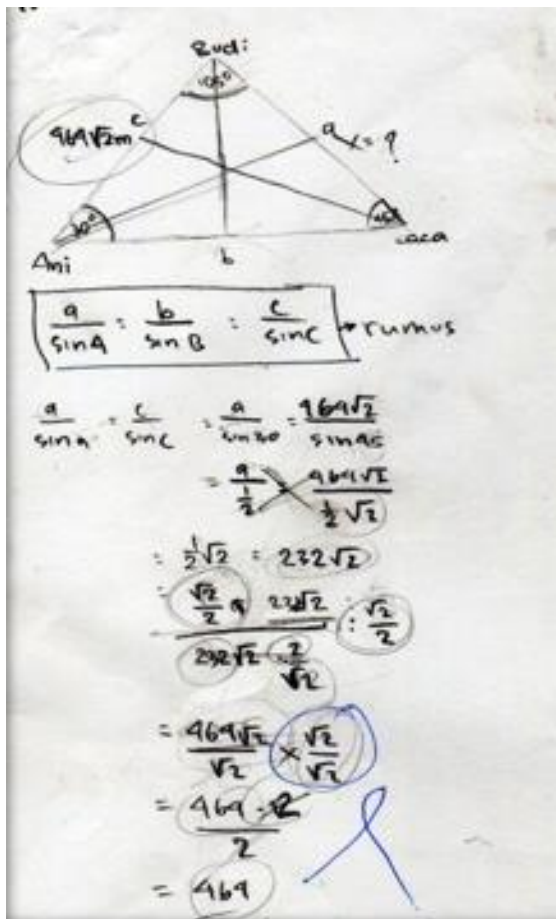 Budi
105°
c
464√2 m
a
x = ?
30°
45°
Ani
b
caca
a/sin A = b/sin B = c/sin C → rumus
a/sin a = c/sin c = a/sin 30 = 464√2/sin 45
= a/(1/2) = 464√2/(1/2 √2)
= 1/2 √2 = 232√2
= √2/2 a 232√2 : √2/2
232√2 · 2/√2
= 464√2/√2 × √2/√2
= 464 · 2/2
= 464